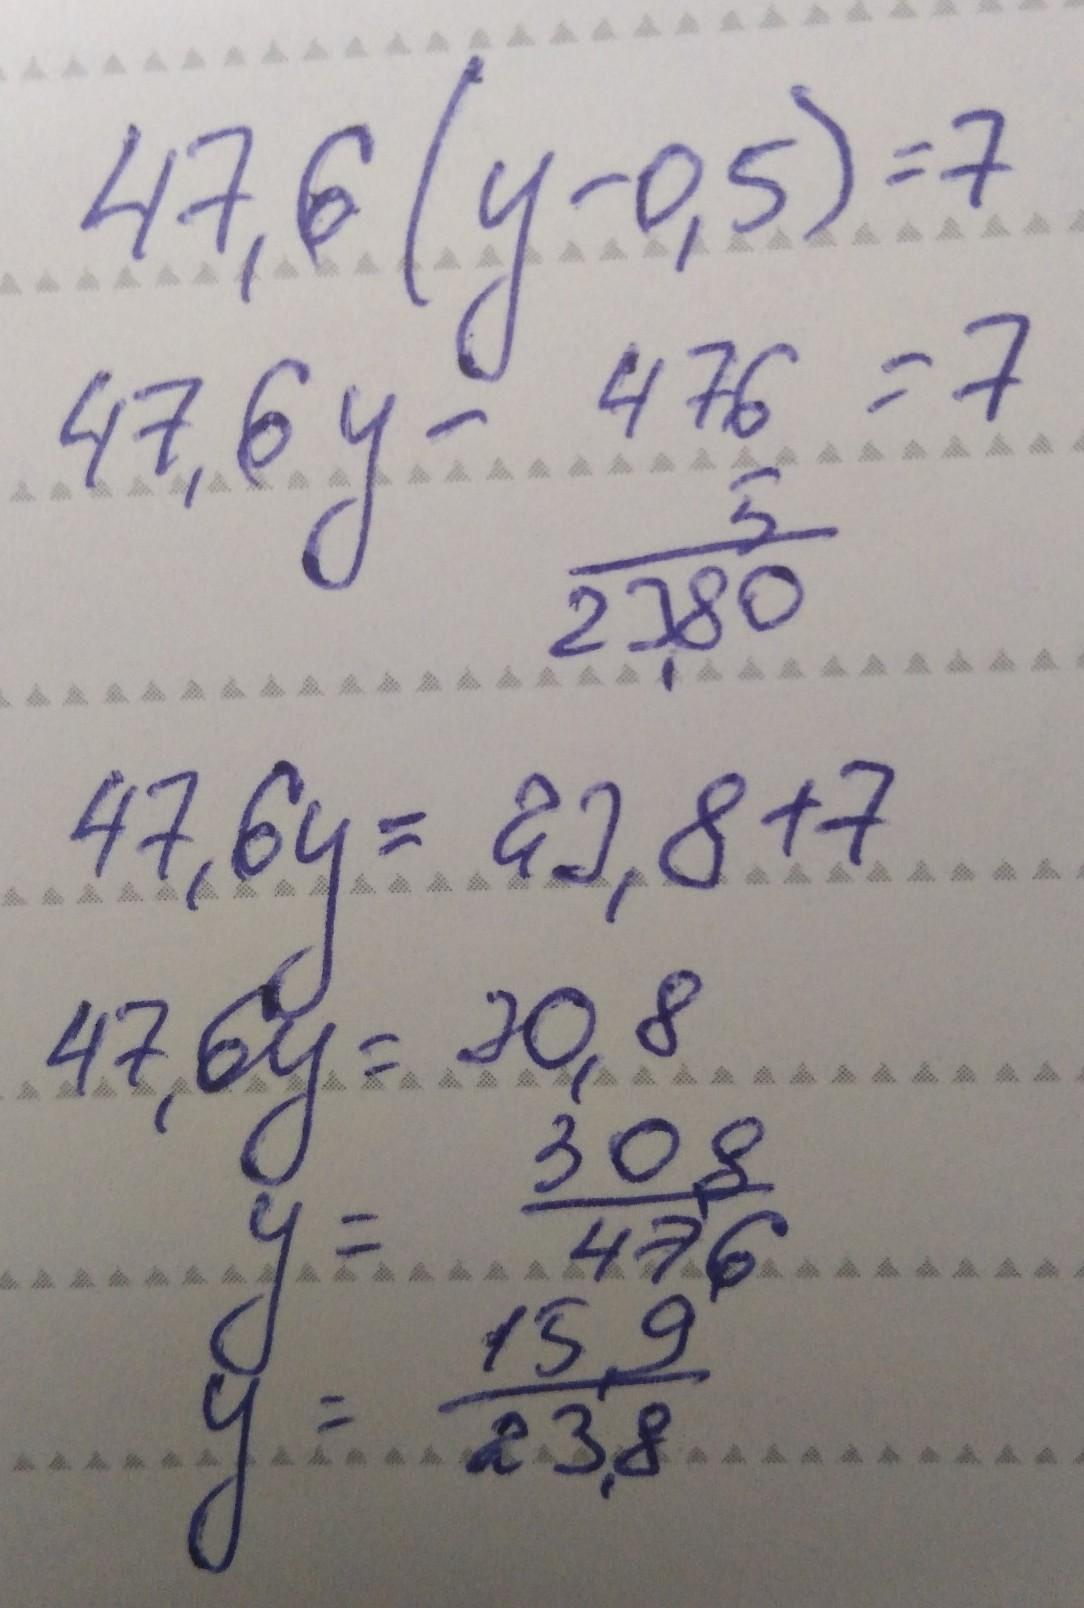 47,6(y-0,5)=7
47,6y- 476 =7
5
23,80
47,6y= 23,8+7
47,6y= 30,8
y= 30,8
47,6
y= 15,9
23,8